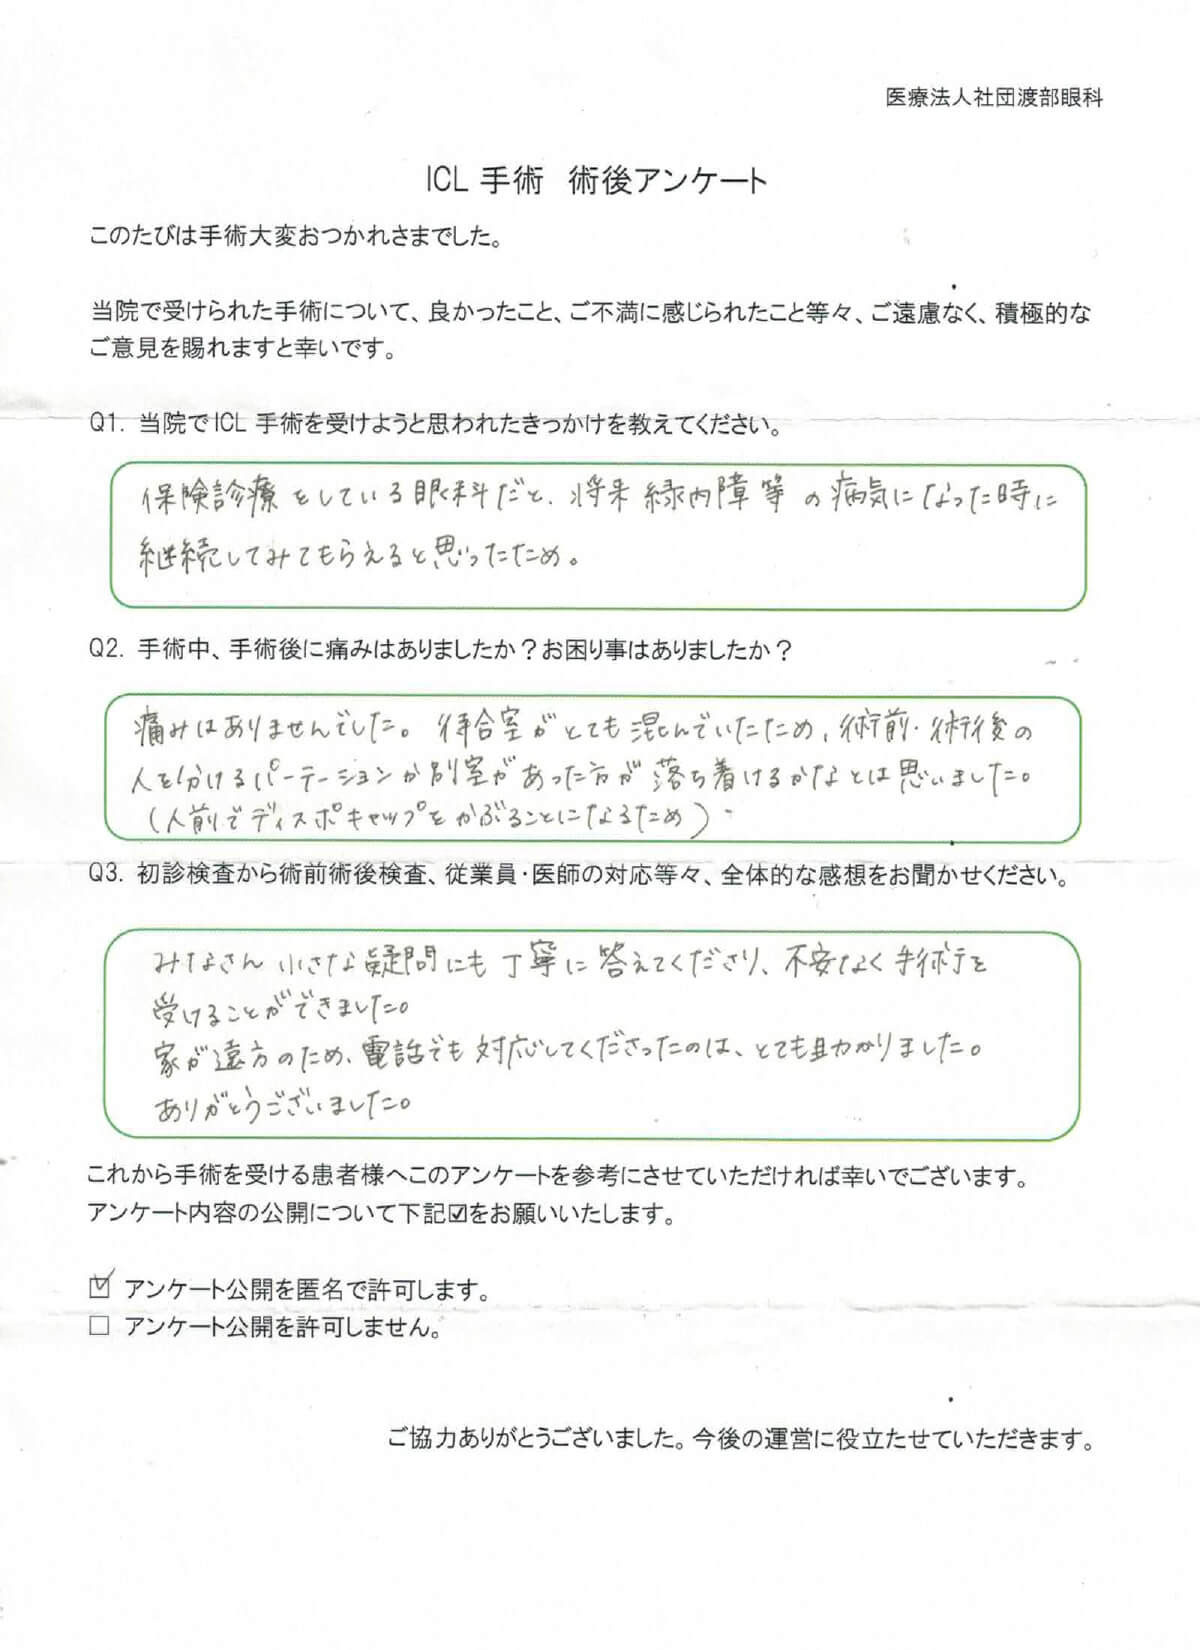 医療法人社団渡部眼科
ICL 手術　術後アンケート
このたびは手術大変おつかれさまでした。
当院で受けられた手術について、良かったこと、ご不満に感じられたこと等々、ご遠慮なく、積極的な
ご意見を賜れますと幸いです。
Q1. 当院でICL 手術を受けようと思われたきっかけを教えてください。
保険診療をしている眼科だと、将来緑内障等の病気になった時に
継続してみてもらえると思ったため。
Q2. 手術中、手術後に痛みはありましたか？お困り事はありましたか？
痛みはありませんでした。待合室がとても混んでいたため、術前・術後の
人を分けるパーテーションか別室があった方が落ち着けるかなとは思いました。
（人前でディスポキャップをかぶることになるため）
Q3. 初診検査から術前術後検査、従業員・医師の対応等々、全体的な感想をお聞かせください。
みなさん小さな疑問にも丁寧に答えてくださり、不安なく手術を
受けることができました。
家が遠方のため、電話でも対応してくださったのは、とても助かりました。
ありがとうございました。
これから手術を受ける患者様へこのアンケートを参考にさせていただければ幸いでございます。
アンケート内容の公開について下記☑をお願いいたします。
☑ アンケート公開を匿名で許可します。
□ アンケート公開を許可しません。
ご協力ありがとうございました。今後の運営に役立たせていただきます。